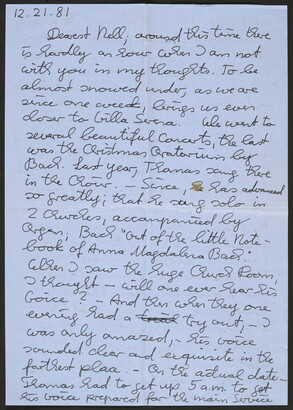 12.21.81
Dearest Nell; around this time there
is hardly an hour when I am not
with you in my thoughts. To be
almost snowed under, as we are
since one week, brings us even
closer to Villa Serena. We went to
several beautiful Concerts, the last
was the Christmas Oratorium by
Bach. Last year, Thomas sang there
in the Chour. – Since, he has advanced
so greatly; that he sang solo in
2 Churches, accompanied by
Organ; Bach "Out of the little Note-
book of Anna Magdalena Bach".
When I saw the huge Church Room,
I thought – will one ever hear his
Voice? – And then when they one
evening had a try out, – I
was only amazed, – his voice
sounded clear and exquisite in the
farthest place. – On the actual date –
Thomas had to get up 5 a.m. to get
his voice prepared for the main Service